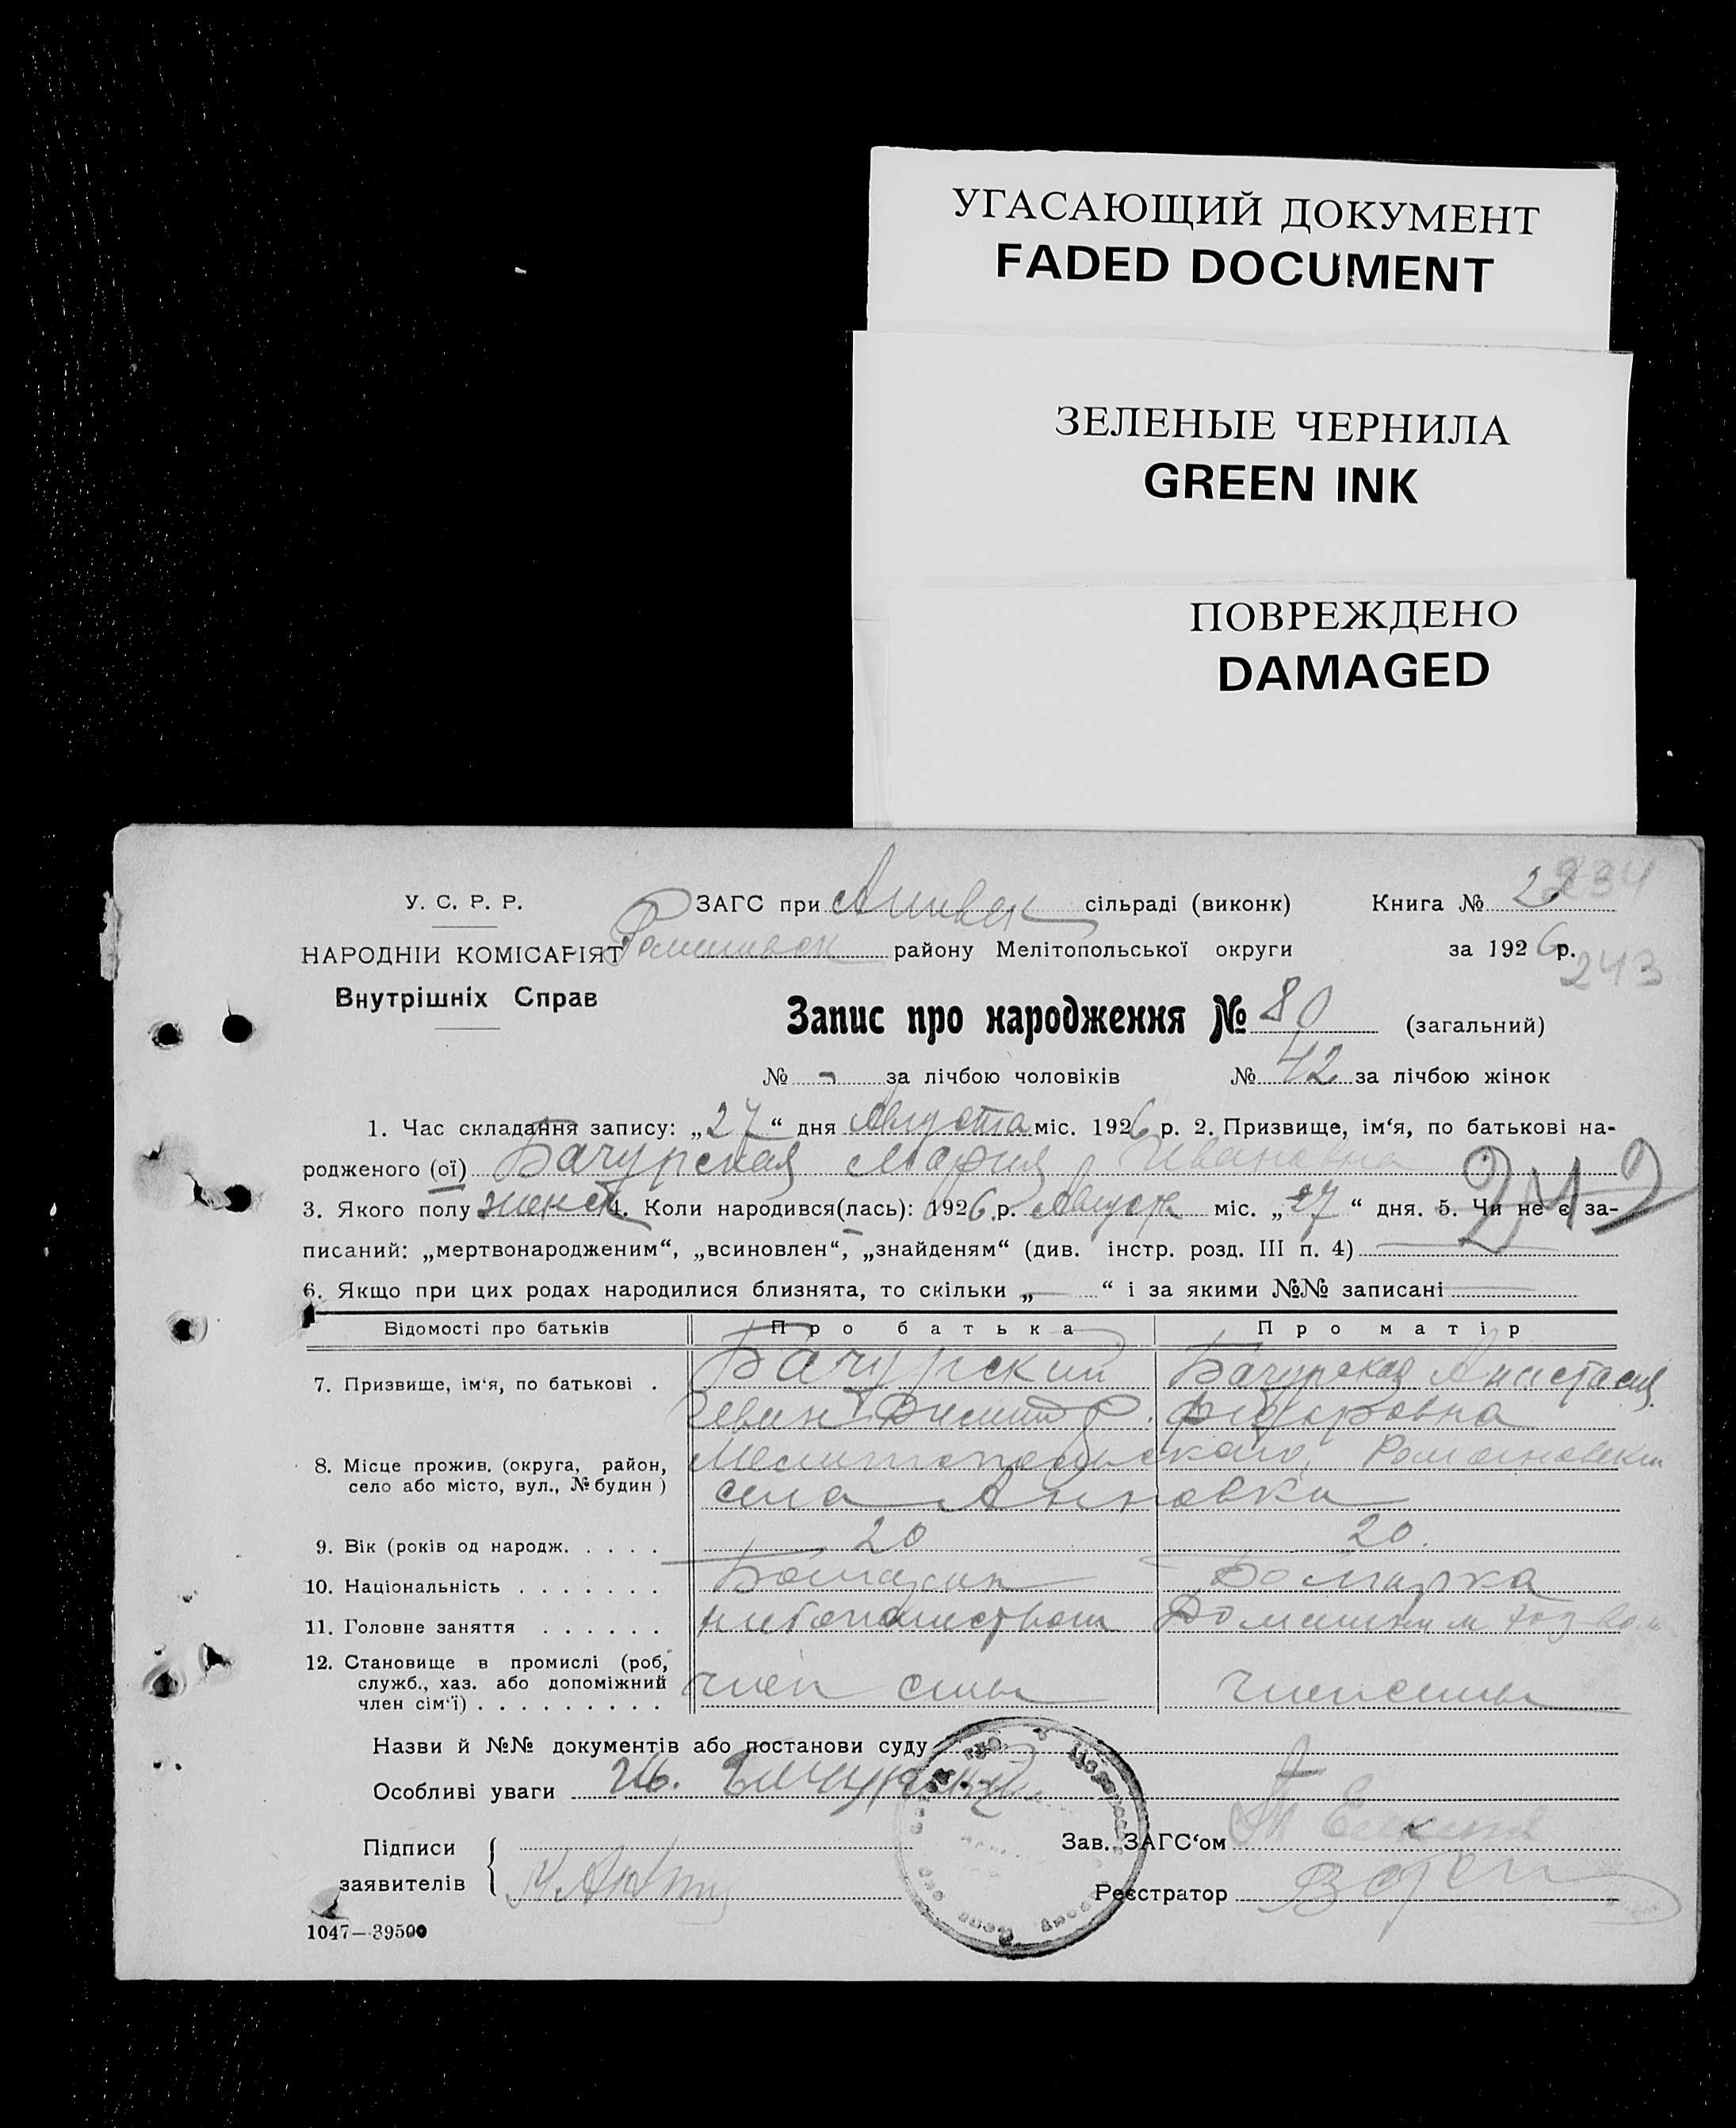 УГАСАЮЩИЙ ДОКУМЕНТ
FADED DOCUMENT
ЗЕЛЕНЫЕ ЧЕРНИЛА
GREEN INK
ПОВРЕЖДЕНО
DAMAGED
234
У. С. Р. Р. ЗАГС при сільраді (виконк) Книга № 2
НАРОДНІЙ КОМІСАРІЯТ району Мелітопольської округи за 1926 р.
243
Внутрішніх Справ
Запис про народження № 80 (загальний)
№ - за лічбою чоловіків № 42 за лічбою жінок
1. Час складання запису: „27“ дня Августа міс. 1926 р. 2. Призвище, ім‘я, по батькові на-
родженого (ої) Бачурская Мария Ивановна
3. Якого полу женск 4. Коли народився(лась): 1926 р. Августа міс. „27“ дня. 5. Чи не є за-
писаний: „мертвонародженим“, „всиновлен“, „знайденям“ (див. інстр. розд. III п. 4)
6. Якщо при цих родах народилися близнята, то скільки „ “ і за якими №№ записані
Відомості про батьків Про батька Про матір
7. Призвище, ім‘я, по батькові . Бачурский Бачурская Анастасия
Иван Федоровна
8. Місце прожив. (округа, район, Мелитопольскаго, Романовскаго
село або місто, вул., № будин) села Анновки
9. Вік (років од народж. . . . . 20 20.
10. Національність . . . . . . . Болгарин Болгарка
11. Головне заняття . . . . . . хлебопашеством Домашним хоз-вом
12. Становище в промислі (роб, член семьи член семьи
служб., хаз. або допоміжний
член сім‘ї) . . . . . . . . .
Назви й №№ документів або постанови суду
Особливі уваги
Підписи Зав. ЗАГС‘ом
заявителів Реєстратор
1047—39500